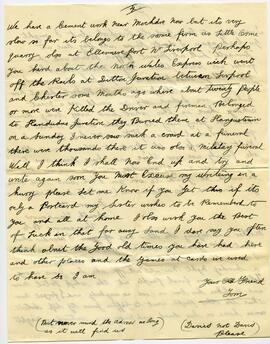 3
We have a Cement work near Mochdre now but its very
slow so far its belongs to the same firm as Little Orme
Quarry also at Ellesmere Port Nr Liverpool Perhaps
you heard about the No. n wales Express wich went
off the Rails at Sutton Junction between Liverpool
and Chester some Months ago where about Twenty People
or more were Killed the Driver and fireman Belonged
to Llandudno Junction they Buried them at Llangwstenin
on a Sunday I never saw such a crowd at a funeral
there were thousands there it was also a Military funeral
Well I think I shall now End up and try and
write again soon you Must Excuse my writing in a
hurry please let me Know if you Get this if its
only a Postcard my sister wishes to be Remembered to
you and all at home I also wish you the Best
of Luck in that far away Land I dare say you often
think about the Good old times you have had here
and other places and the Games at cards we used
to have So I am
Your Old Friend
Tom
(But never mind the adress as long
as it will find us)
(Davies not Davis
Please)